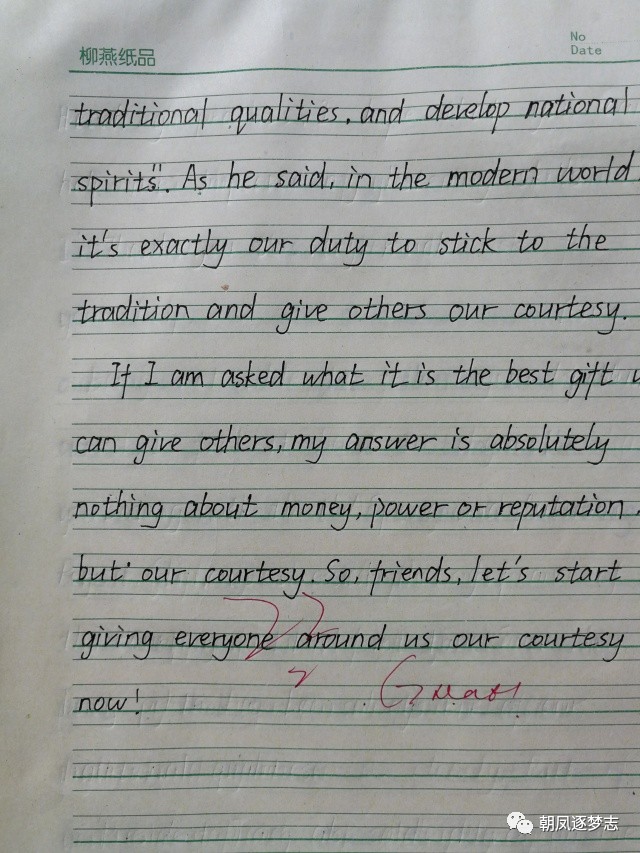 柳燕纸品
No
Date
traditional qualities, and develop national
spirits". As he said, in the modern world
it's exactly our duty to stick to the
tradition and give others our courtesy.
If I am asked what it is the best gift
can give others, my answer is absolutely
nothing about money, power or reputation,
but our courtesy. So, friends, let's start
giving everyone around us our courtesy
now!
Great
朝凤逐梦志